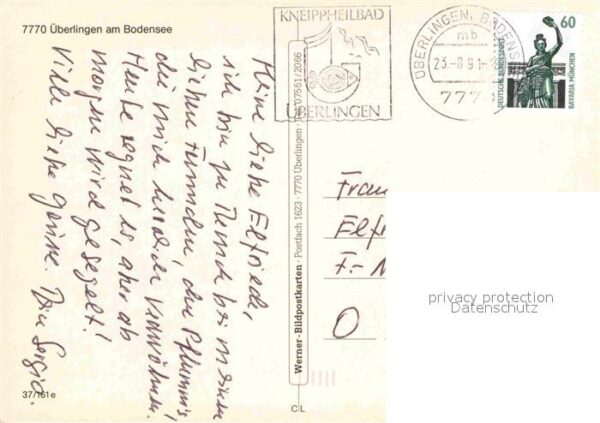 7770 Überlingen am Bodensee
Meine liebe Elfriede,
ich bin zu Besuch bei meinen
lieben Freunden, den
die mich herrlich verwöhnen.
Heute regnet es, aber ab
morgen wird gesegelt!
Viele liebe Grüsse. Dein
37/161e
Werner-Bildpostkarten · Postfach 1623 · 7770 Überlingen · Tel. 07551/2066
C L
KNEIPPHEILBAD
ÜBERLINGEN
ÜBERLINGEN, BODENSEE
mb
23.-8.91-
777
60
DEUTSCHE BUNDESPOST
BAVARIA MÜNCHEN
Frau
Elfr
F.-
O
privacy protection
Datenschutz